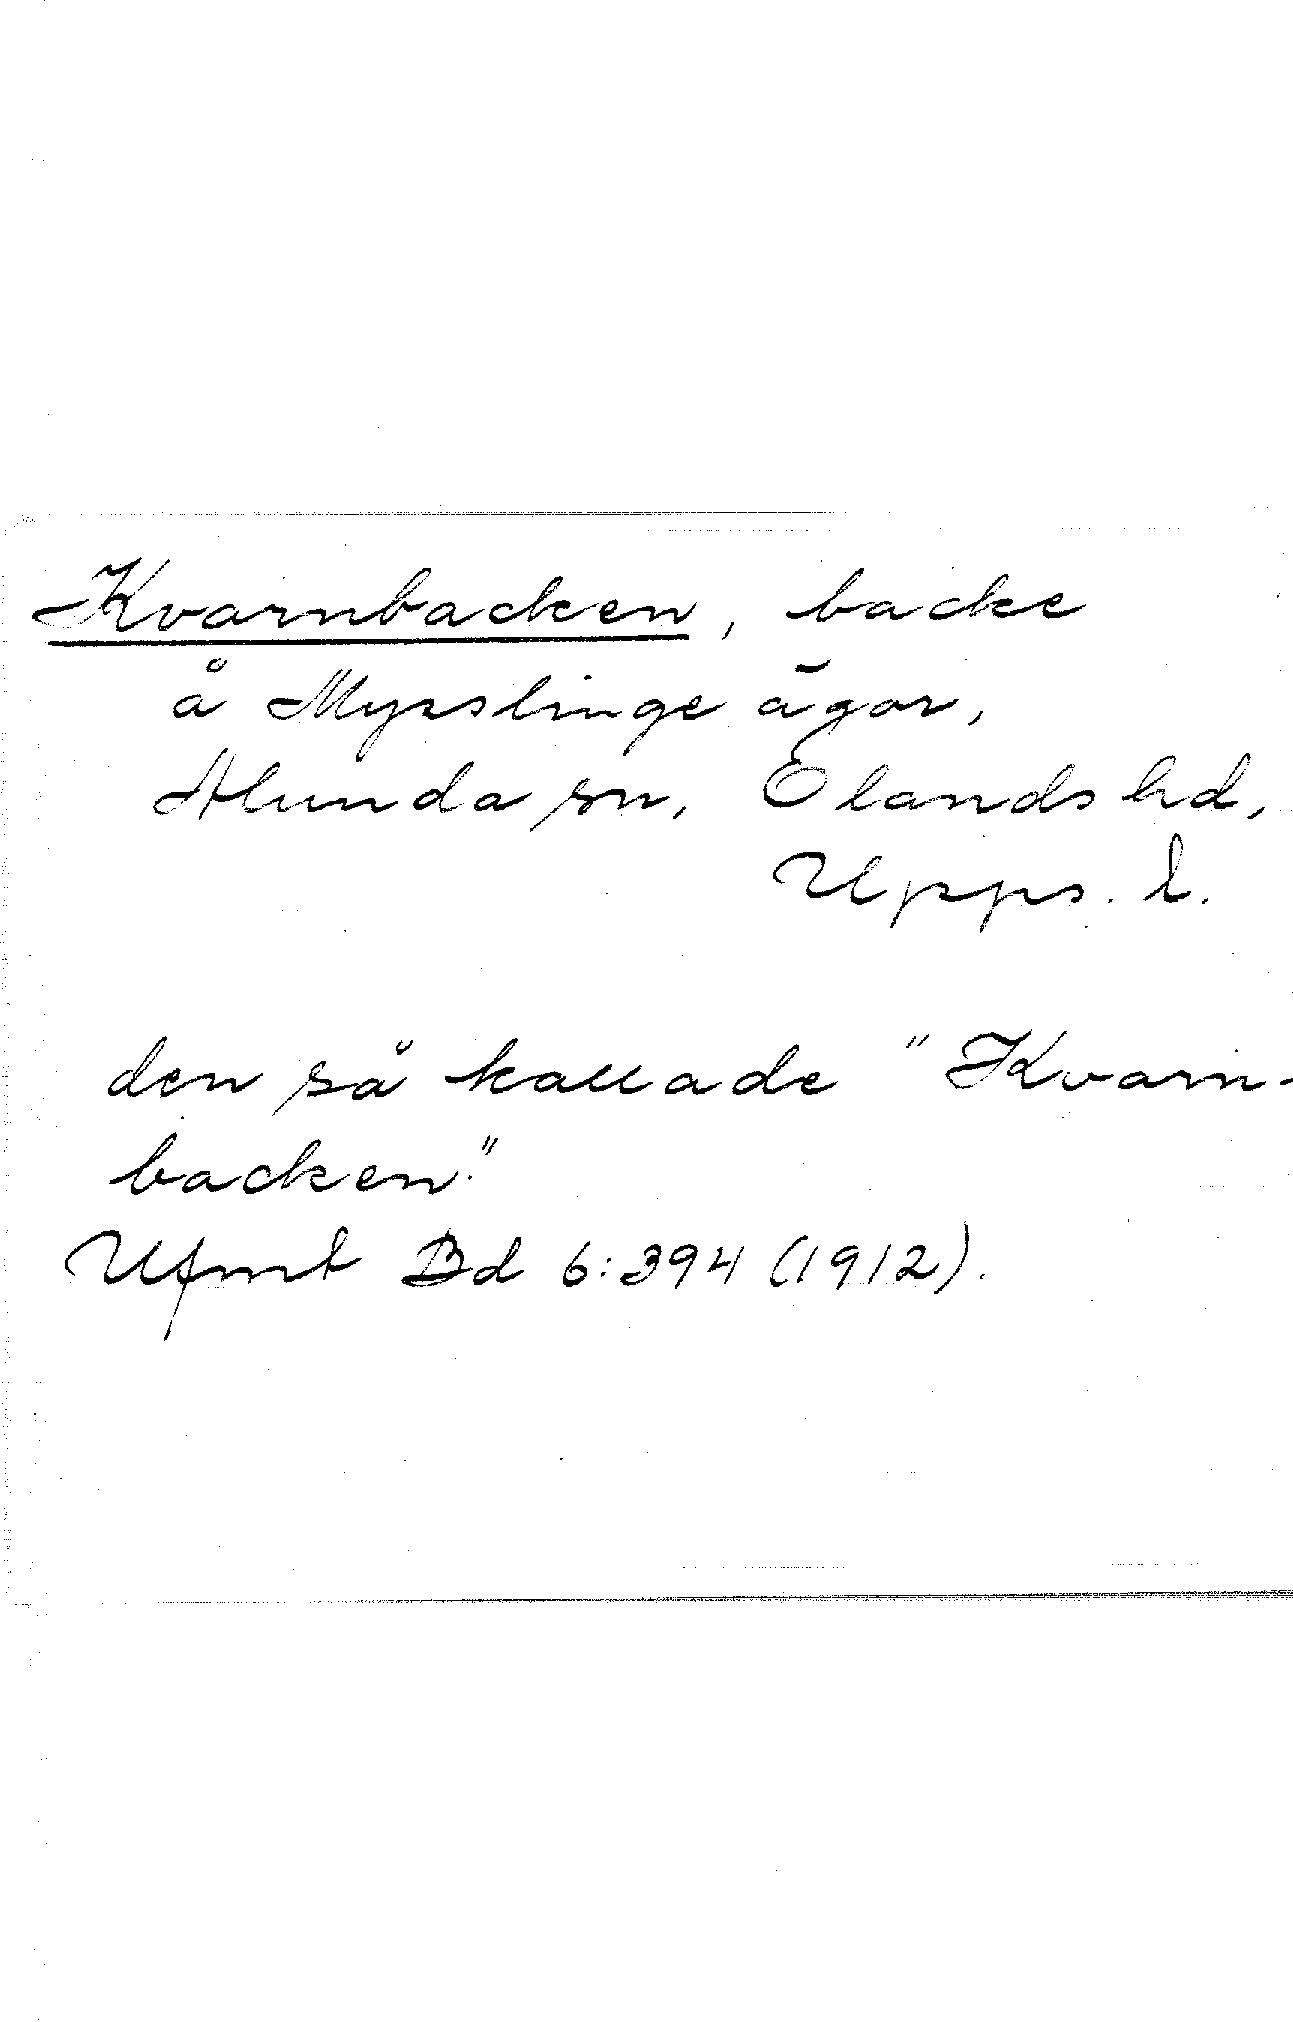 Kvarnbacken, backe
å Myrslinge ägor,
Alunda sn, Olands hd,
Upps. l.
den så kallade "Kvarn-
backen."
Ufmt Bd 6:394 (1912).